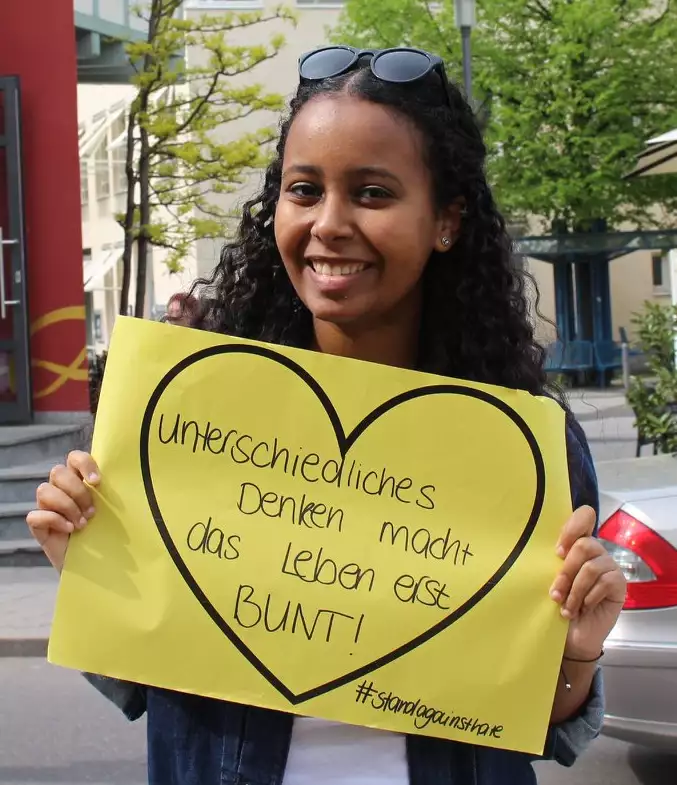 Unterschiedliches
Denken macht
das Leben erst
BUNT!
#standagainsthate